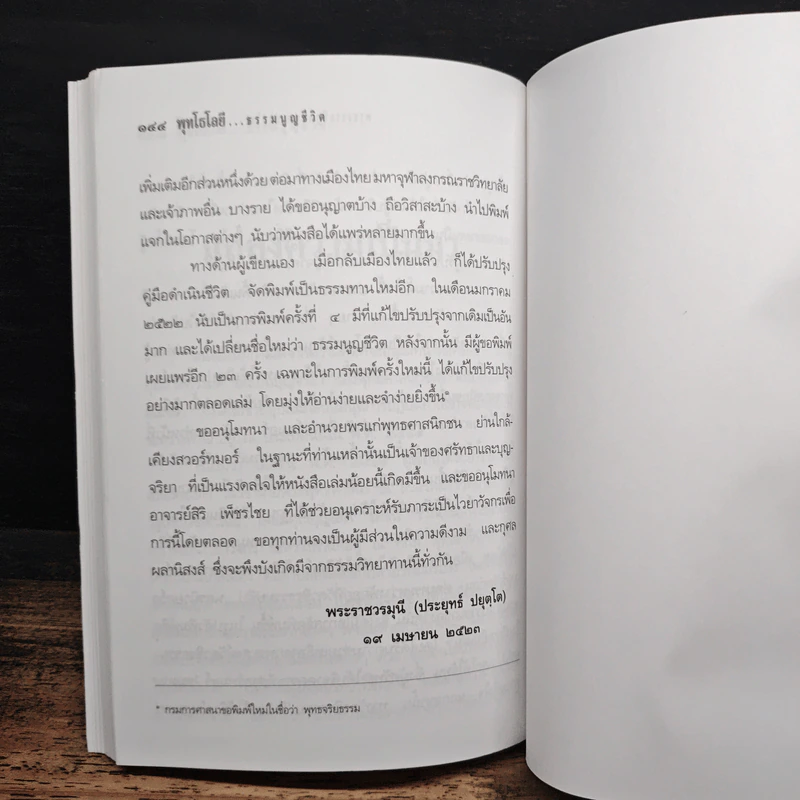 ๑๔๔ พุทโธโลยี...ธรรมนูญชีวิต
เพิ่มเติมอีกส่วนหนึ่งด้วย ต่อมาทางเมืองไทย มหาจุฬาลงกรณราชวิทยาลัย
และเจ้าภาพอื่น บางราย ได้ขออนุญาตบ้าง ถือวิสาสะบ้าง นำไปพิมพ์
แจกในโอกาสต่างๆ นับว่าหนังสือได้แพร่หลายมากขึ้น
ทางด้านผู้เขียนเอง เมื่อกลับเมืองไทยแล้ว ก็ได้ปรับปรุง
คู่มือดำเนินชีวิต จัดพิมพ์เป็นธรรมทานใหม่อีก ในเดือนมกราคม
๒๕๒๒ นับเป็นการพิมพ์ครั้งที่ ๔ มีที่แก้ไขปรับปรุงจากเดิมเป็นอัน
มาก และได้เปลี่ยนชื่อใหม่ว่า ธรรมนูญชีวิต หลังจากนั้น มีผู้ขอพิมพ์
เผยแพร่อีก ๒๓ ครั้ง เฉพาะในการพิมพ์ครั้งใหม่นี้ ได้แก้ไขปรับปรุง
อย่างมากตลอดเล่ม โดยมุ่งให้อ่านง่ายและจำง่ายยิ่งขึ้น*
ขออนุโมทนา และอำนวยพรแก่พุทธศาสนิกชน ย่านใกล้-
เคียงสวอร์ทมอร์ ในฐานะที่ท่านเหล่านั้นเป็นเจ้าของศรัทธาและบุญ-
จริยา ที่เป็นแรงดลใจให้หนังสือเล่มน้อยนี้เกิดมีขึ้น และขออนุโมทนา
อาจารย์สิริ เพ็ชรไชย ที่ได้ช่วยอนุเคราะห์รับภาระเป็นไวยาวัจกรเพื่อ
การนี้โดยตลอด ขอทุกท่านจงเป็นผู้มีส่วนในความดีงาม และกุศล
ผลานิสงส์ ซึ่งจะพึงบังเกิดมีจากธรรมวิทยาทานนี้ทั่วกัน
พระราชวรมุนี (ประยุทธ์ ปยุตฺโต)
๑๙ เมษายน ๒๕๒๓
* กรมการศาสนาขอพิมพ์ใหม่ในชื่อว่า พุทธจริยธรรม